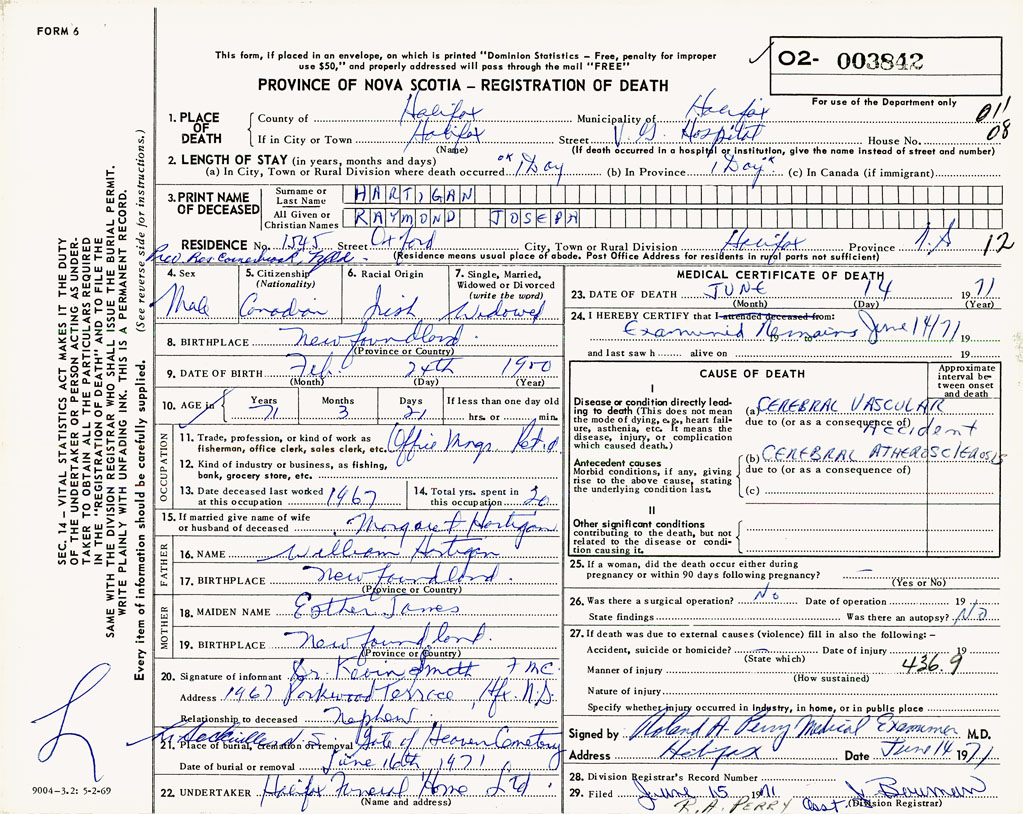 FORM 6
This form, if placed in an envelope, on which is printed "Dominion Statistics — Free, penalty for improper
use $50," and properly addressed will pass through the mail "FREE"
02- 003842
PROVINCE OF NOVA SCOTIA — REGISTRATION OF DEATH
For use of the Department only
1. PLACE OF DEATH County of Halifax Municipality of Halifax 011
If in City or Town Halifax Street V. G. Hospital House No. 08
(Name) (If death occurred in a hospital or institution, give the name instead of street and number)
2. LENGTH OF STAY (in years, months and days)
(a) In City, Town or Rural Division where death occurred "OK 1 Day (b) In Province 1 Day" (c) In Canada (if immigrant)
3. PRINT NAME OF DECEASED Surname or Last Name HARTIGAN
All Given or Christian Names RAYMOND JOSEPH
RESIDENCE No. 1545 Street Oxford City, Town or Rural Division Halifax Province N.S 12
(Residence means usual place of abode. Post Office Address for residents in rural parts not sufficient)
Prev. Res Cornerbrook, Nfld.
4. Sex 5. Citizenship (Nationality) 6. Racial Origin 7. Single, Married, Widowed or Divorced (write the word)
Male Canadian Irish Widowed
8. BIRTHPLACE Newfoundland
(Province or Country)
9. DATE OF BIRTH Feb. 24th 1900
(Month) (Day) (Year)
10. AGE in Years Months Days If less than one day old
71 3 21 hrs. or min.
OCCUPATION
11. Trade, profession, or kind of work as fisherman, office clerk, sales clerk, etc. Office Mngr Ret'd.
12. Kind of industry or business, as fishing, bank, grocery store, etc.
13. Date deceased last worked at this occupation 1967 14. Total yrs. spent in this occupation 20
15. If married give name of wife or husband of deceased Margaret Hartigan
FATHER
16. NAME William Hartigan
17. BIRTHPLACE Newfoundland.
(Province or Country)
MOTHER
18. MAIDEN NAME Esther James
19. BIRTHPLACE Newfoundland.
(Province or Country)
20. Signature of informant Dr. Kevin Smith
Address 1967 Yorkwood Terrace, Hfx. N.S.
Relationship to deceased Nephew.
L. Sackville N.S.
21. Place of burial, cremation or removal Gate of Heaven Cemetery
Date of burial or removal June 16th, 1971
22. UNDERTAKER Halifax Funeral Home Ltd
(Name and address)
MEDICAL CERTIFICATE OF DEATH
23. DATE OF DEATH JUNE 14 1971
(Month) (Day) (Year)
24. I HEREBY CERTIFY that I attended deceased from:
Examined Remains June 14/71 19
and last saw h alive on 19
CAUSE OF DEATH
Approximate interval between onset and death
I
Disease or condition directly leading to death (This does not mean the mode of dying, e.g., heart failure, asthenia, etc. It means the disease, injury, or complication which caused death.)
(a) CEREBRAL VASCULAR
due to (or as a consequence of) Accident
Antecedent causes
Morbid conditions, if any, giving rise to the above cause, stating the underlying condition last.
(b) CEREBRAL ATHEROSCLEROSIS
due to (or as a consequence of)
(c)
II
Other significant conditions
contributing to the death, but not related to the disease or condition causing it.
25. If a woman, did the death occur either during
pregnancy or within 90 days following pregnancy? —
(Yes or No)
26. Was there a surgical operation? No Date of operation 19
State findings Was there an autopsy? NO
27. If death was due to external causes (violence) fill in also the following: —
Accident, suicide or homicide? — Date of injury 19
(State which)
Manner of injury 436.9
(How sustained)
Nature of injury
Specify whether injury occurred in industry, in home, or in public place
Signed by Roland A. Perry Medical Examiner M.D.
Address Halifax Date June 14 1971
28. Division Registrar's Record Number
29. Filed June 15 1971 J. Bowman
R. A. PERRY Asst. (Division Registrar)
SEC. 14 — VITAL STATISTICS ACT MAKES IT THE DUTY
OF THE UNDERTAKER OR PERSON ACTING AS UNDER-
TAKER TO OBTAIN ALL THE PARTICULARS REQUIRED
IN THE "REGISTRATION OF DEATH" AND TO FILE THE
SAME WITH THE DIVISION REGISTRAR WHO SHALL ISSUE THE BURIAL PERMIT.
WRITE PLAINLY WITH UNFADING INK. THIS IS A PERMANENT RECORD.
Every item of information should be carefully supplied. (See reverse side for instructions.)
9004-3.2: 5-2-69